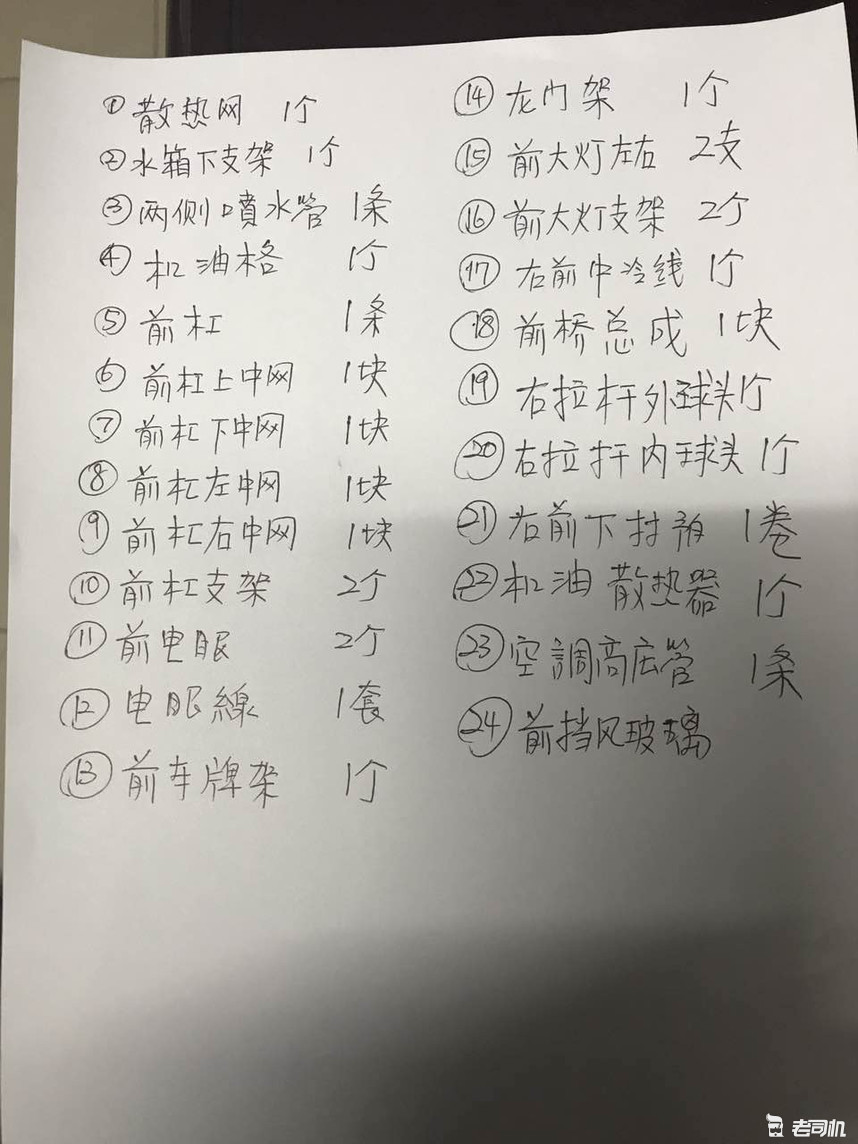 ① 散热网 1个
② 水箱下支架 1个
③ 两侧噴水管 1条
④ 机油格 1个
⑤ 前杠 1条
⑥ 前杠上中网 1块
⑦ 前杠下中网 1块
⑧ 前杠左中网 1块
⑨ 前杠右中网 1块
⑩ 前杠支架 2个
⑪ 前电眼 2个
⑫ 电眼線 1套
⑬ 前车牌架 1个
⑭ 龙门架 1个
⑮ 前大灯左右 2支
⑯ 前大灯支架 2个
⑰ 右前中冷线 1个
⑱ 前桥总成 1块
⑲ 右拉杆外球头 1个
⑳ 右拉杆内球头 1个
㉑ 右前下 1卷
㉒ 机油散热器 1个
㉓ 空調高底管 1条
㉔ 前挡风玻璃
老司机